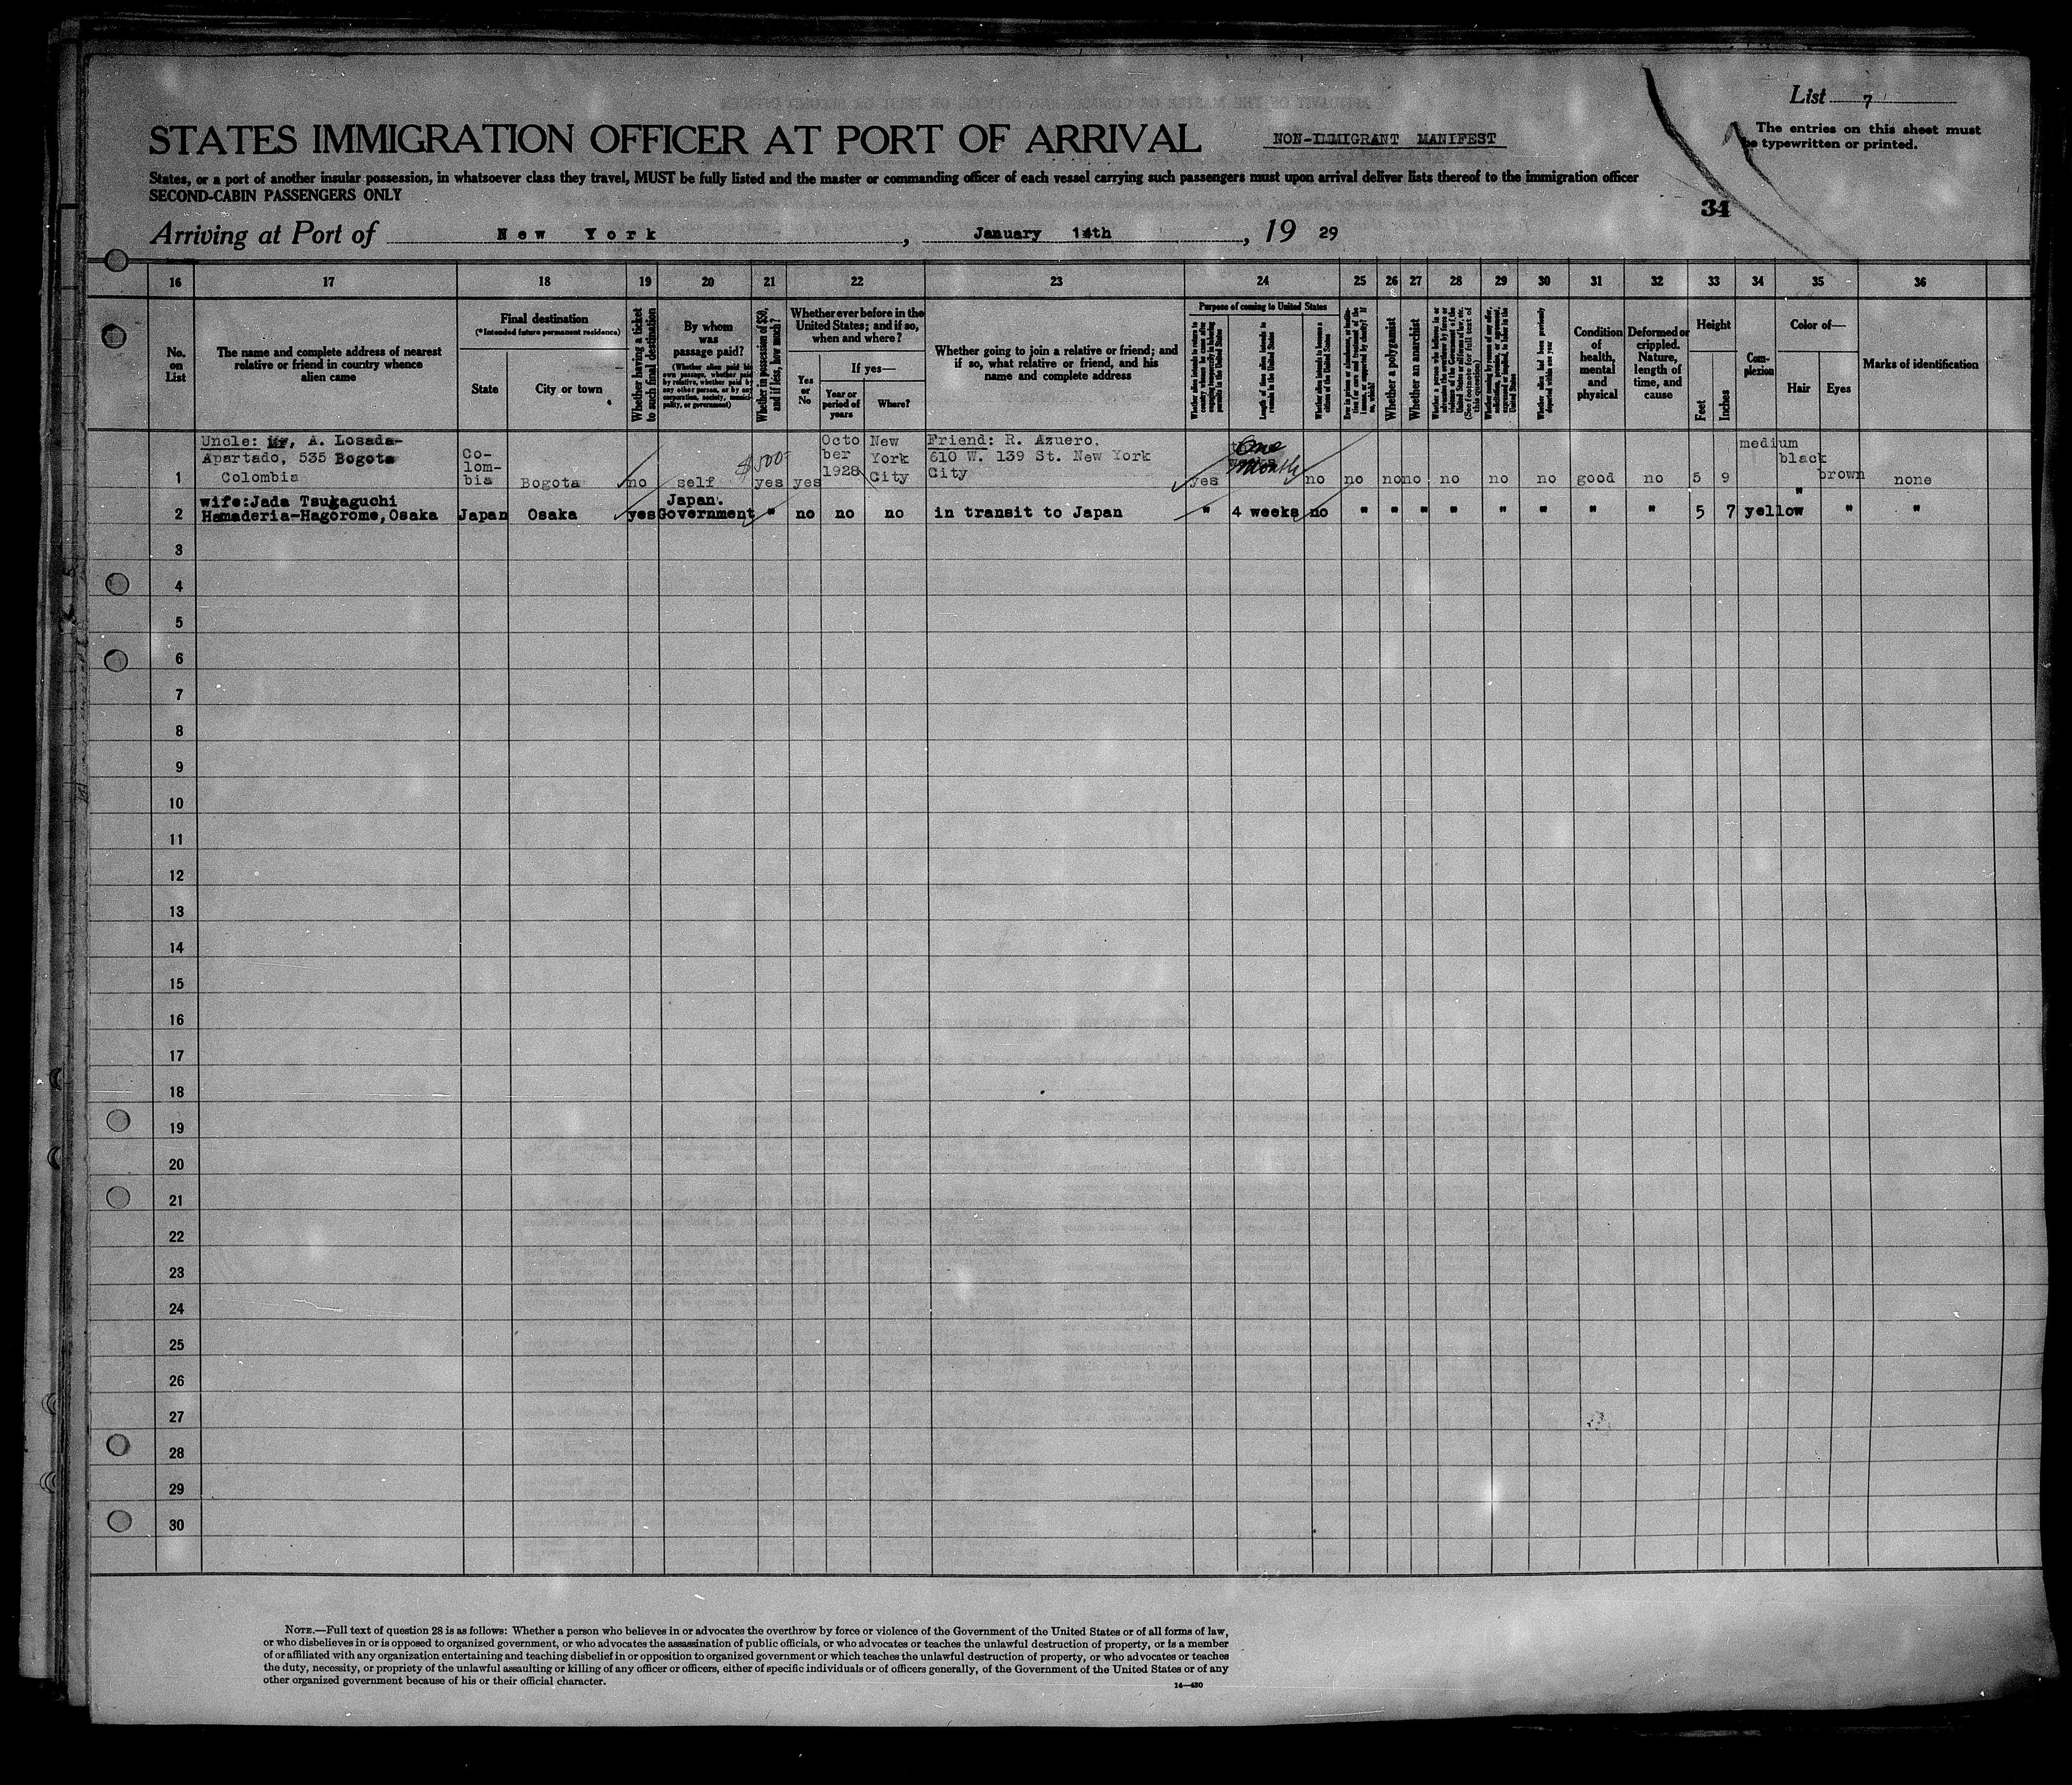 List 7
STATES IMMIGRATION OFFICER AT PORT OF ARRIVAL
NON-IMMIGRANT MANIFEST
The entries on this sheet must
be typewritten or printed.
States, or a port of another insular possession, in whatsoever class they travel, MUST be fully listed and the master or commanding officer of each vessel carrying such passengers must upon arrival deliver lists thereof to the immigration officer
SECOND-CABIN PASSENGERS ONLY
34
Arriving at Port of New York, January 14th, 19 29
16 17 18 19 20 21 22 23 24 25 26 27 28 29 30 31 32 33 34 35 36
No. on List
The name and complete address of nearest relative or friend in country whence alien came
Final destination
(*Intended future permanent residence)
State
City or town
Whether having a ticket to such final destination
By whom was passage paid?
(Whether alien paid his own passage, whether paid by relative, whether paid by any other person, or by any corporation, society, municipality, or government)
Whether in possession of $50, and if less, how much?
Whether ever before in the United States; and if so, when and where?
Yes or No
If yes—
Year or period of years
Where?
Whether going to join a relative or friend; and if so, what relative or friend, and his name and complete address
Purpose of coming to United States
Length of time alien intends to remain in the United States
Whether alien intends to become a citizen of the United States
Whether a polygamist
Whether an anarchist
Whether alien had been previously deported within one year
Condition of health, mental and physical
Deformed or crippled. Nature, length of time, and cause
Height
Feet
Inches
Complexion
Color of—
Hair
Eyes
Marks of identification
1 Uncle: Mr, A. Losada- Apartado, 535 Bogota Colombia Co-lom-bia Bogota no self $500- yes yes October 1928 New York City Friend: R. Azuero. 610 W. 139 St. New York City yes One Month no no no no no no no good no 5 9 medium black brown none
2 wife:Jada Tsukaguchi Hamaderia-Hagorome, Osaka Japan Osaka yes Japan. Government " no no no in transit to Japan " 4 weeks no " " " " " " " " 5 7 yellow " " "
3
4
5
6
7
8
9
10
11
12
13
14
15
16
17
18
19
20
21
22
23
24
25
26
27
28
29
30
NOTE.—Full text of question 28 is as follows: Whether a person who believes in or advocates the overthrow by force or violence of the Government of the United States or of all forms of law,
or who disbelieves in or is opposed to organized government, or who advocates the assassination of public officials, or who advocates or teaches the unlawful destruction of property, or is a member
of or affiliated with any organization entertaining and teaching disbelief in or opposition to organized government or which teaches the unlawful destruction of property, or who advocates or teaches
the duty, necessity, or propriety of the unlawful assaulting or killing of any officer or officers, either of specific individuals or of officers generally, of the Government of the United States or of any
other organized government because of his or their official character.
14—430